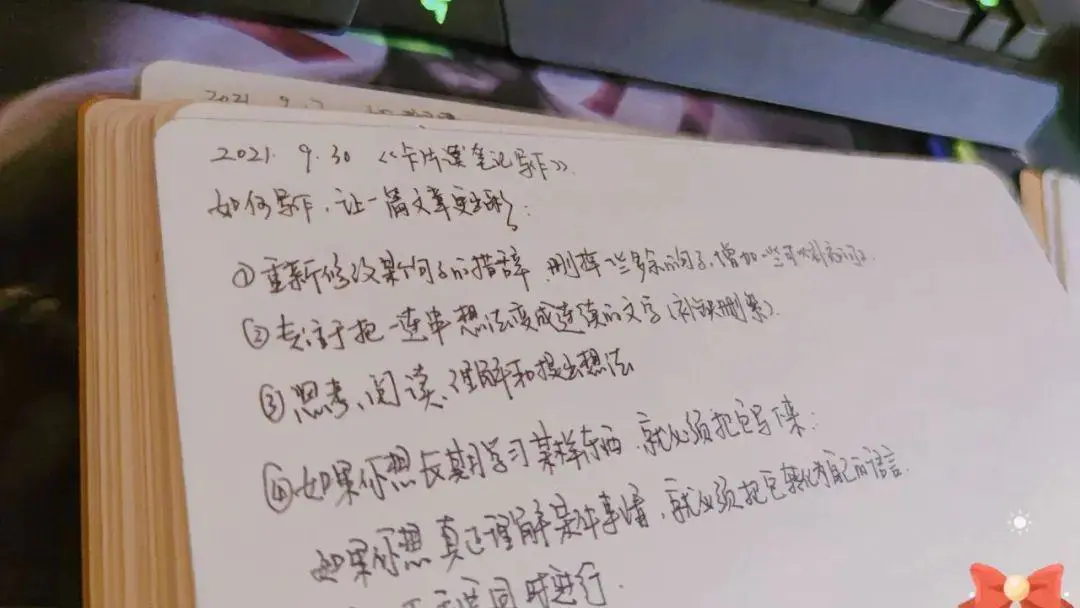 2021. 9.
2021. 9.30 《卡片读笔记写作》.
如何写作,让一篇文章更出彩:
①重新修改某句子的措辞,删掉一些多余的句子,增加一些可以补充的
②专注于把一连串想法变成连续的文字(补缺删繁).
③思考、阅读、理解和提出想法
④如果你想长期学习某样东西,就必须把它写下来:
如果你想真正理解某件事情,就必须把它转化为自己的语言.
同时进行.